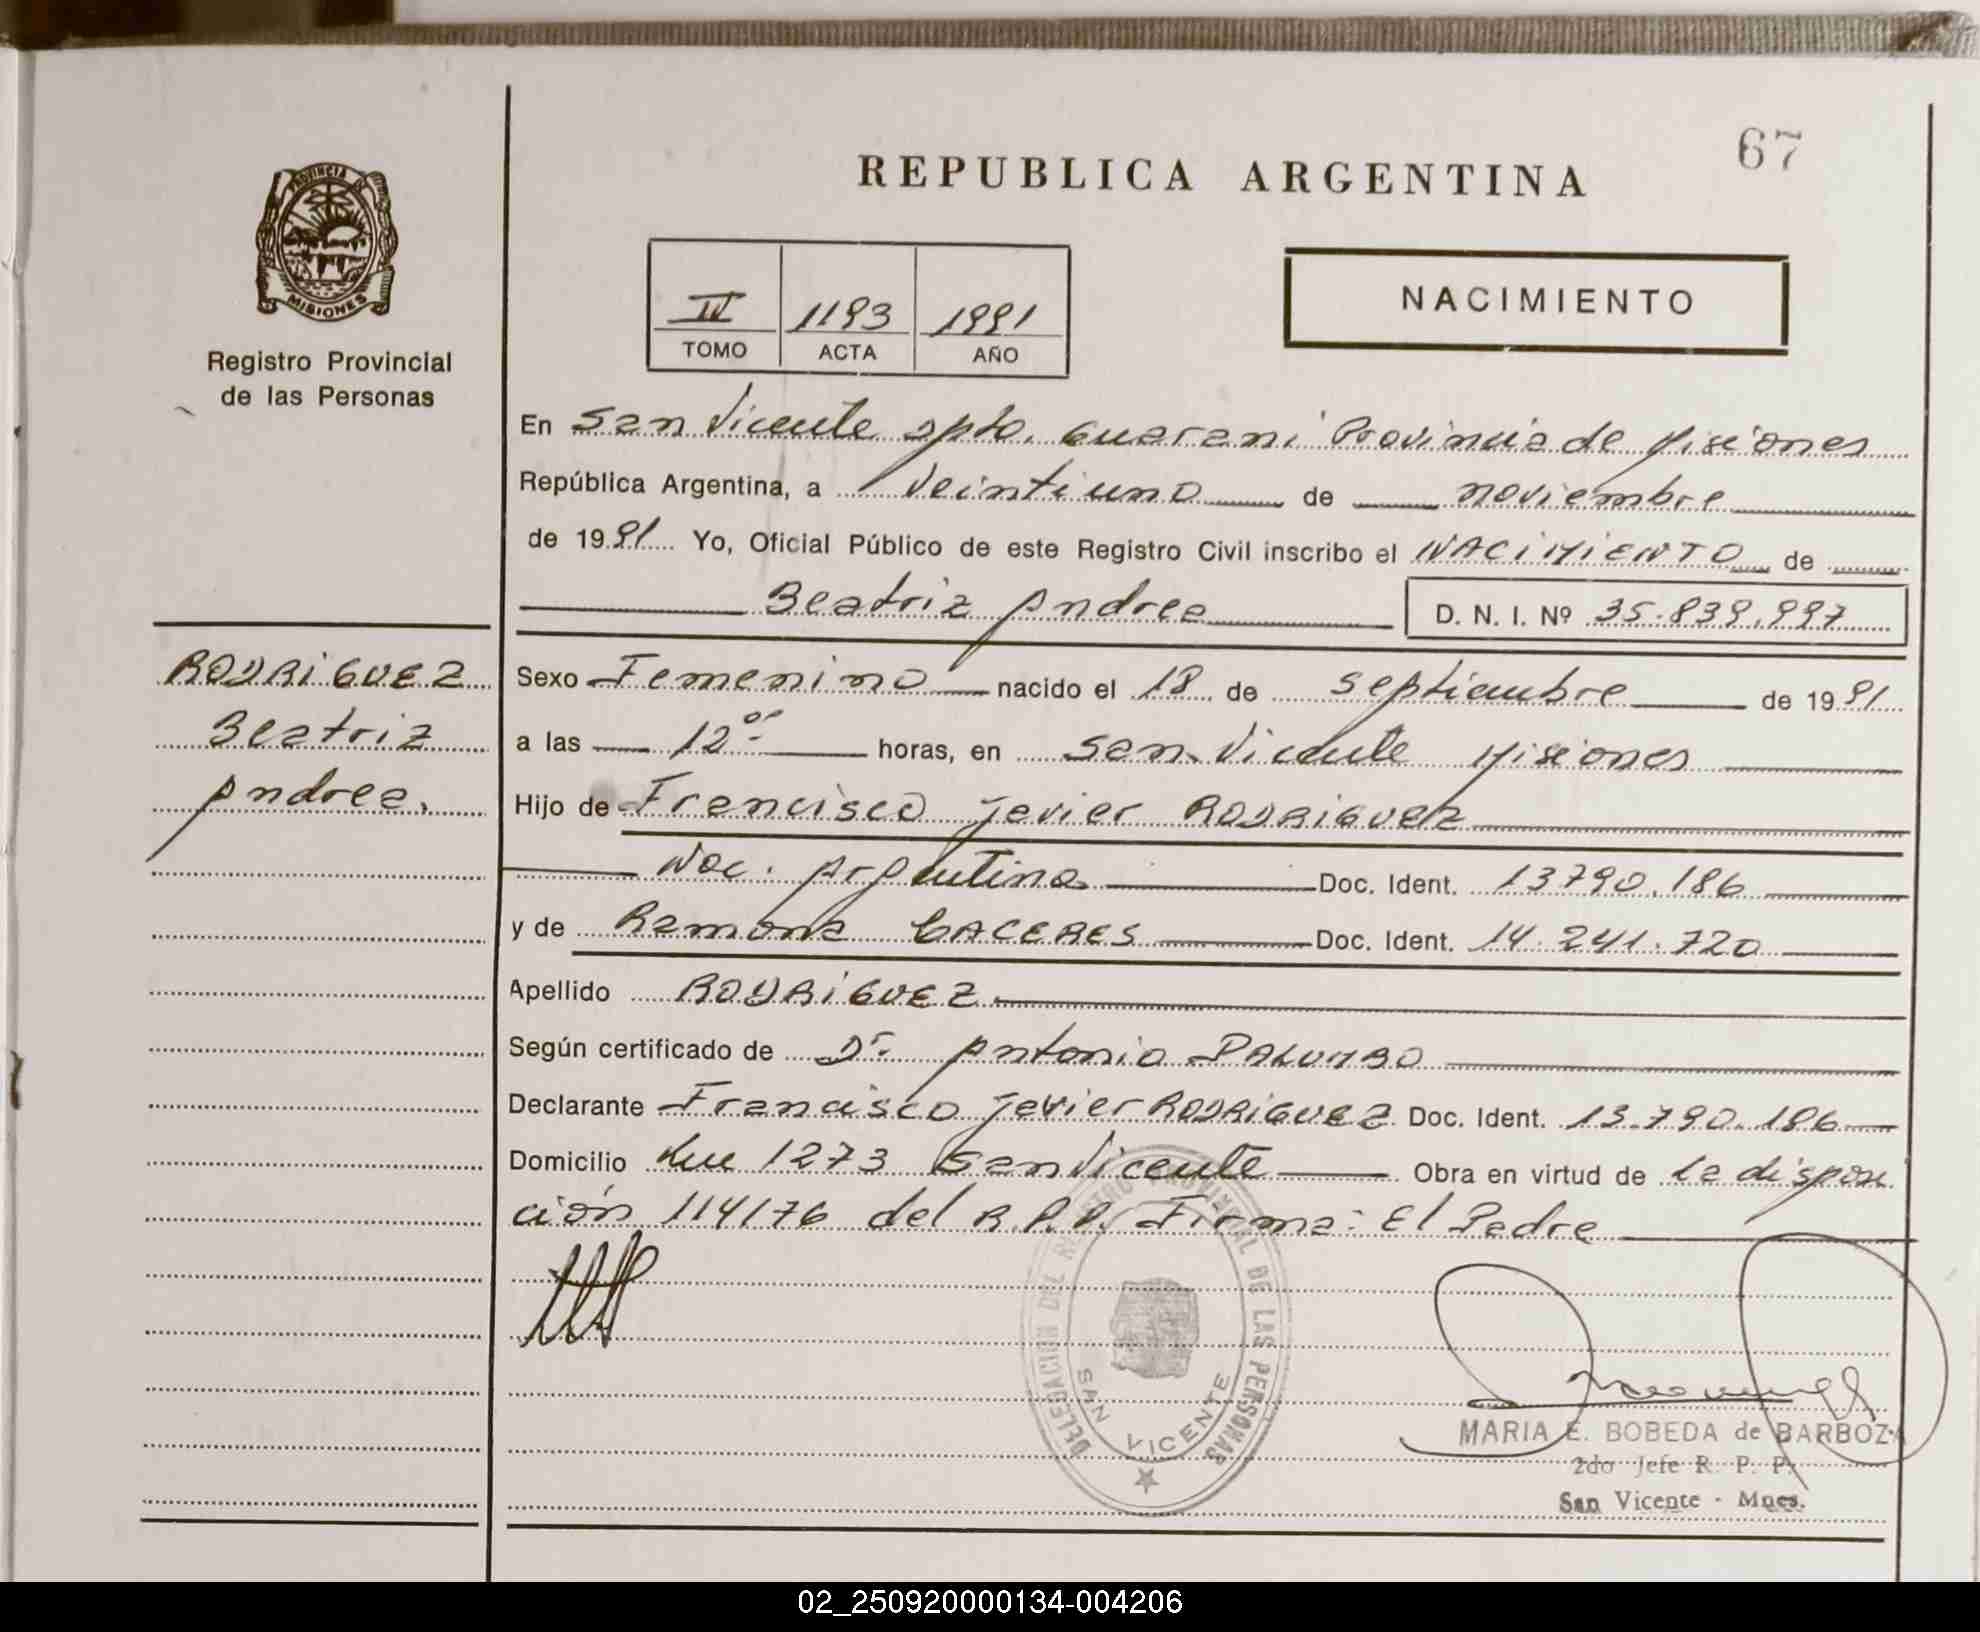 67
REPUBLICA ARGENTINA
PROVINCIA DE
MISIONES
Registro Provincial
de las Personas
NACIMIENTO
IV 1193 1991
TOMO ACTA AÑO
En San Vicente Dpto. Guarani Provincia de Misiones
República Argentina, a veintiuno de noviembre
de 1991 Yo, Oficial Público de este Registro Civil inscribo el NACIMIENTO de
Beatriz Andrea D. N. I. Nº 35.839.997
RODRIGUEZ
Beatriz
Andrea.
Sexo Femenino nacido el 18 de septiembre de 1991
a las 12 00 horas, en San Vicente Misiones
Hijo de Francisco Javier RODRIGUEZ
Nac. Argentina Doc. Ident. 13790.186
y de Ramona CACERES Doc. Ident. 14.241.720
Apellido RODRIGUEZ
Según certificado de Dr. Antonio PALUMBO
Declarante Francisco Javier RODRIGUEZ Doc. Ident. 13.790.186
Domicilio 1273 San Vicente Obra en virtud de la disposi
ción 114/76 del R.P.P. Firma: El Padre
DELEGACION DEL REGISTRO PROVINCIAL DE LAS PERSONAS
SAN VICENTE
MARIA E. BOBEDA de BARBOZA
2do Jefe R. P. P.
San Vicente - Mnes.
02_250920000134-004206